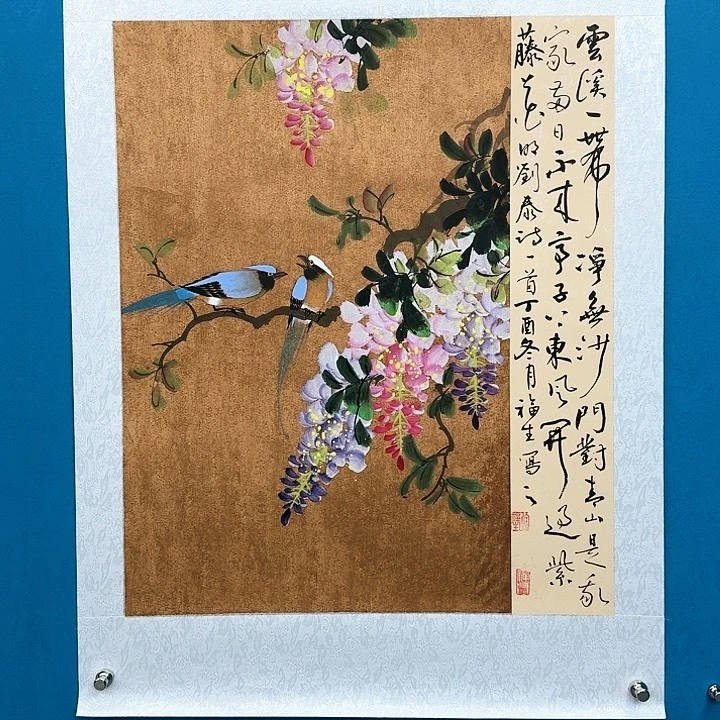 雲溪一帶淨無沙門對青山是我
家日不來亭子上東風開過紫
藤花明劉泰詩一首丁酉冬月福生寫之